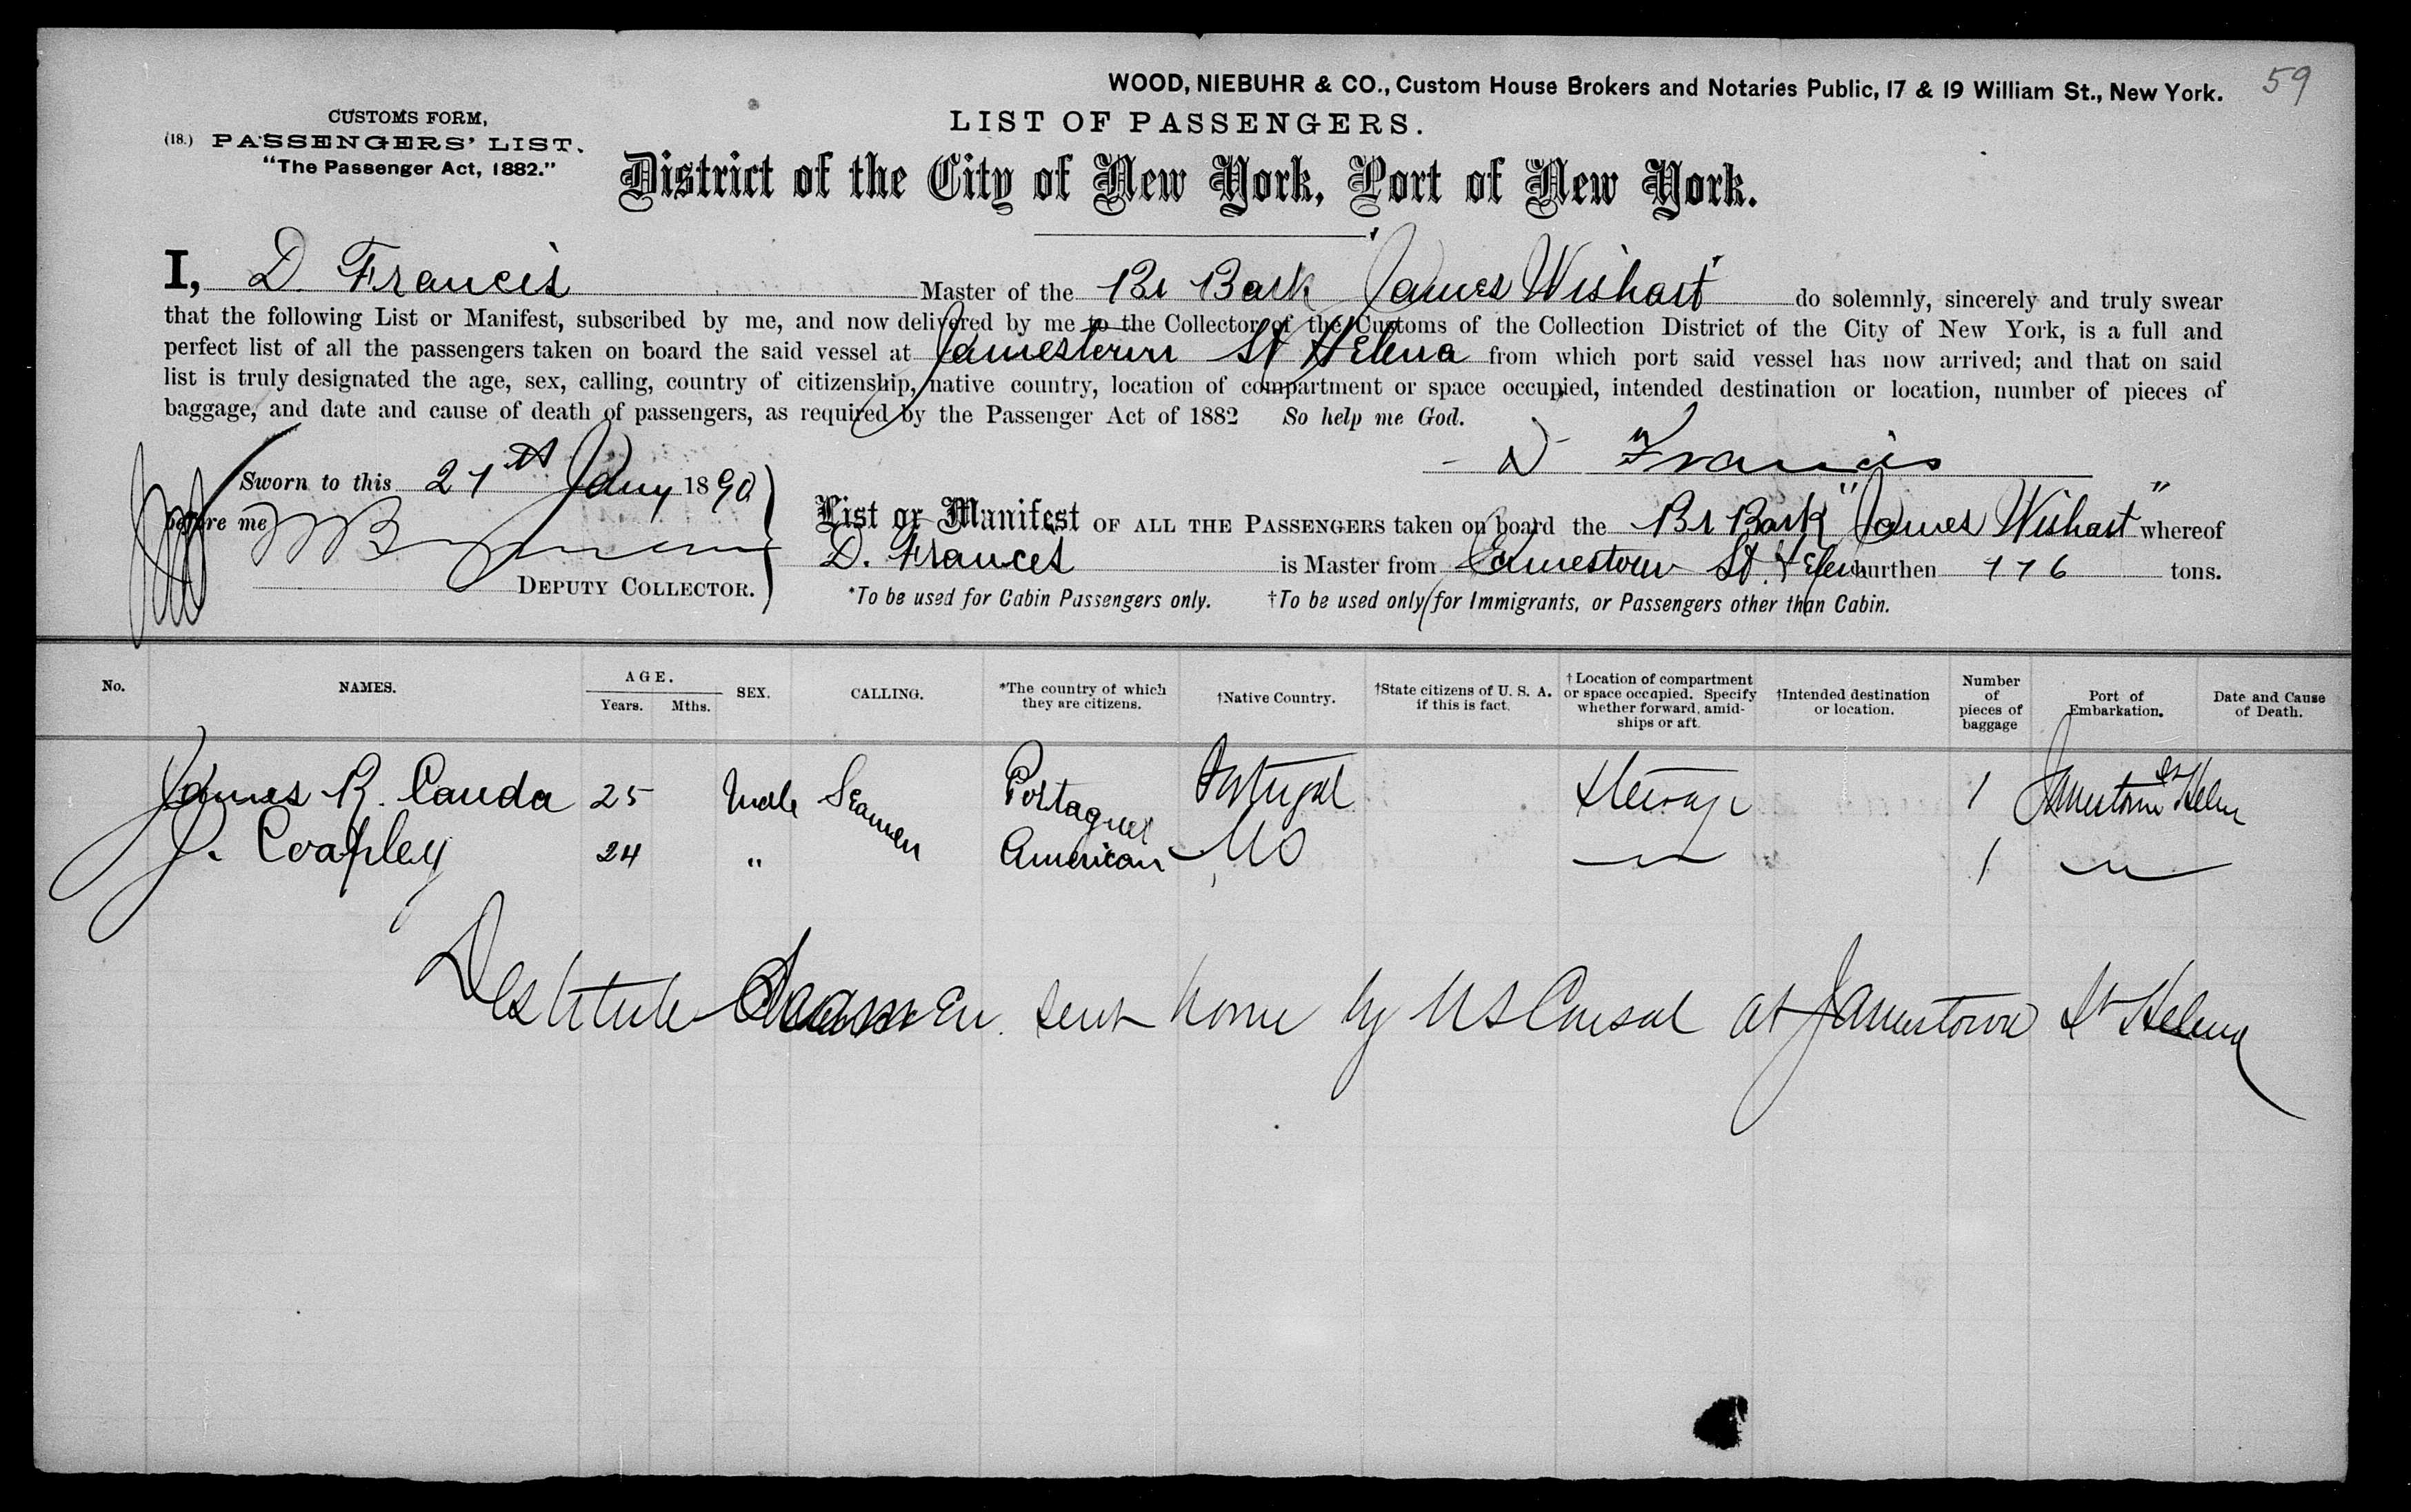 WOOD, NIEBUHR & CO., Custom House Brokers and Notaries Public, 17 & 19 William St., New York. 59
CUSTOMS FORM,
(18.) PASSENGERS' LIST.
"The Passenger Act, 1882."
LIST OF PASSENGERS.
District of the City of New York, Port of New York.
I, D. Francis Master of the Br Bark James Wishart do solemnly, sincerely and truly swear
that the following List or Manifest, subscribed by me, and now delivered by me to the Collector of the Customs of the Collection District of the City of New York, is a full and
perfect list of all the passengers taken on board the said vessel at Jamestown St Helena from which port said vessel has now arrived; and that on said
list is truly designated the age, sex, calling, country of citizenship, native country, location of compartment or space occupied, intended destination or location, number of pieces of
baggage, and date and cause of death of passengers, as required by the Passenger Act of 1882 So help me God.
D Francis
Sworn to this Jany 1890
before me
DEPUTY COLLECTOR.
List or Manifest OF ALL THE PASSENGERS taken on board the Br Bark "James Wishart" whereof
D. Francis is Master from Jamestown St. Helena burthen tons.
*To be used for Cabin Passengers only. †To be used only for Immigrants, or Passengers other than Cabin.
No. NAMES. AGE. Years. Mths. SEX. CALLING. *The country of which they are citizens. †Native Country. †State citizens of U. S. A. if this is fact. †Location of compartment or space occupied. Specify whether forward, amidships or aft. †Intended destination or location. Number of pieces of baggage Port of Embarkation. Date and Cause of Death.
James R. 25 Male Seamen Portugal Steerage 1 Jamestown St Helena
J. 24 " American US 1
Destitute Seamen sent home by US Consul at Jamestown St Helena